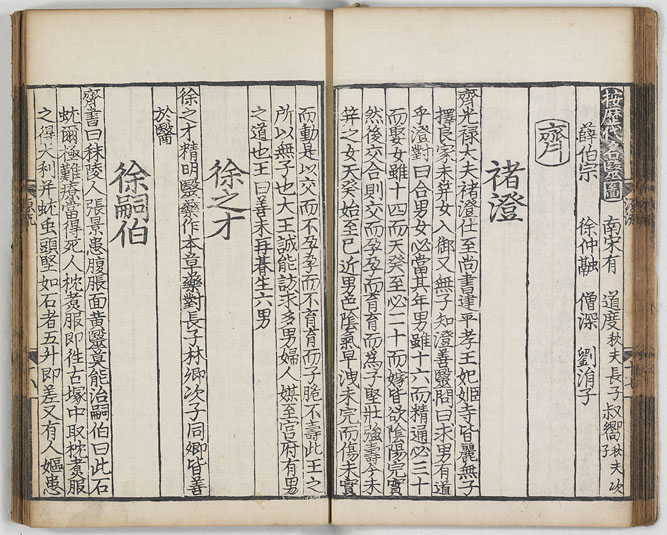 按歷代名醫圖 南宋有 道度秋夫長子 叔嚮秋夫次子
薛伯宗 徐仲融 僧深 劉涓子
齊
褚澄
齊光禄大夫褚澄仕至尚書建平孝王妃姬寺皆麗無子
擇良家未笄女入御又無子知澄善醫問曰求男有道
乎澄對曰合男女必當其年男雖十六而精通必三十
而娶女雖十四而天癸至必二十而嫁皆欲陰陽完實
然後交合則交而孕孕而育育而爲子堅壯強壽今未
笄之女天癸始至已近男色陰氣早洩未完而傷未實
而動是以交而不孕孕而不育育而子脆不壽此王之
所以無子也大王誠能訪求多男婦人媒至宮府有男
之道也王曰善未再朞生六男
徐之才
徐之才精明醫藥作本草藥對長子林卿次子同卿皆善
於醫
徐嗣伯
齊書曰秣陵人張景患腹脹面黄醫莫能治嗣伯曰此石
蚘爾極難療當得死人枕煑服即徃古塚中取枕煑服
之得大利并蚘虫頭堅如石者五升即差又有人嫗患